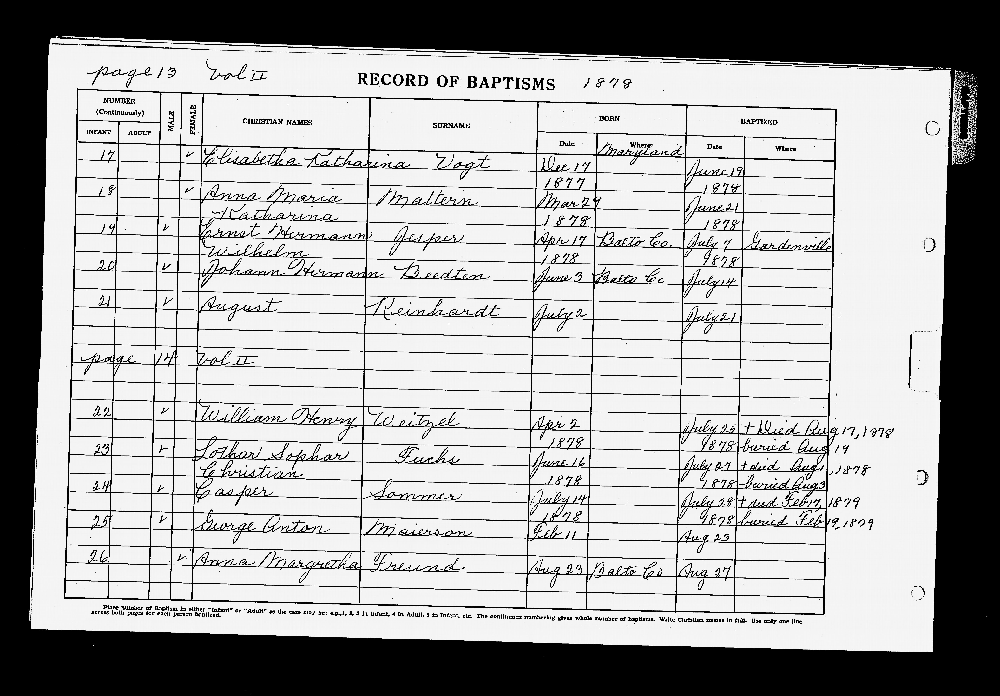 page 13 Vol II RECORD OF BAPTISMS 1878
NUMBER (Continuously) MALE FEMALE CHRISTIAN NAMES SURNAME BORN BAPTIZED
INFANT ADULT Date Where Maryland Date Where
17 ✓ Elisabetha Katharina Vogt Dec 17 June 19
1877 1878
18 ✓ Anna Maria Maltern Mar 24 June 21
Katharina 1878 1878
19 ✓ Ernst Hermann Jesper Apr 17 Balto Co. July 7 Gardenville
Wilhelm 1878 1878
20 ✓ Johann Hermann Beedten June 3 Balto Co July 14
21 ✓ August Reinhardt July 2 July 21
page 14 Vol II
22 ✓ William Henry Weitzel Apr 2 July 25 + Died Aug 17, 1878
1878 1878 buried Aug 19
23 ✓ Lothar Sophar Fuchs June 16 July 27 + died Aug 1, 1878
Christian 1878 1878 buried Aug 3
24 ✓ Casper Sommer July 14 July 28 + died Feb 17, 1879
1878 1878 buried Feb 19, 1879
25 ✓ George Anton Maierson Feb 11 Aug 23
26 ✓ Anna Margretha Freund Aug 23 Balto Co Aug 27
Place number of Baptism in either "Infant" or "Adult" as the case may be: e.g., 1, 2, 3 in Infant, 4 in Adult, 5 in Infant, etc. The continuous numbering gives whole number of baptisms. Write Christian names in full. Use only one line
across both pages for each person baptized.